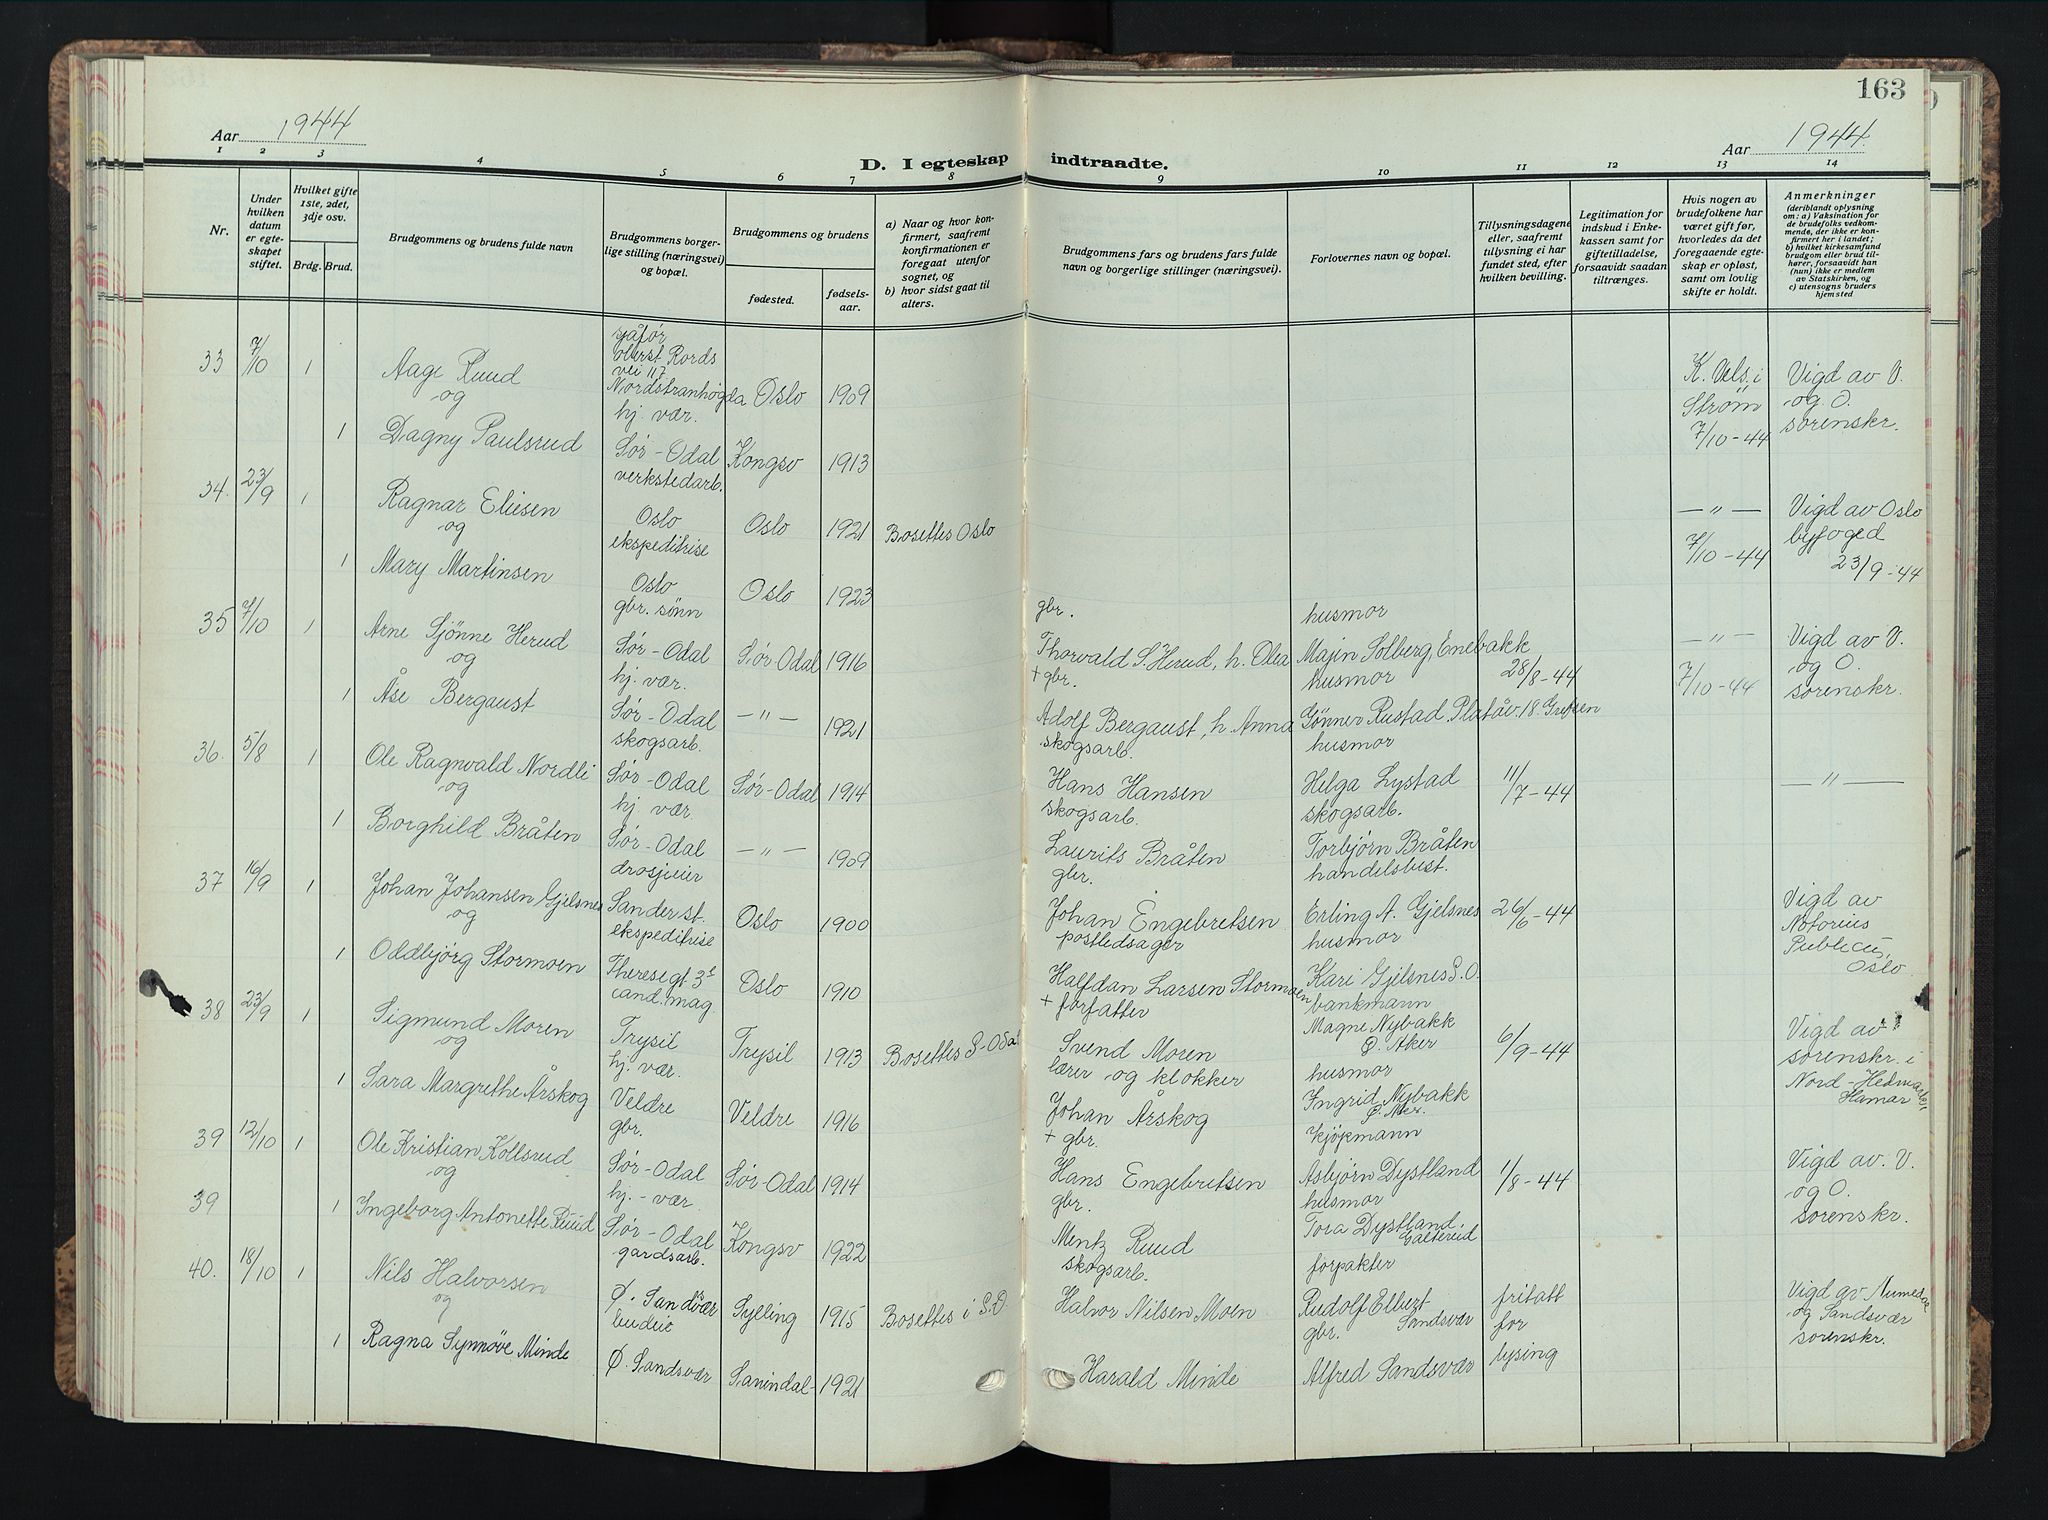 163
Aar 1944
Aar 1944.
D. I egteskap indtraadte.
1 2 3 4 5 6 7 8 9 10 11 12 13 14
Nr.
Under hvilken datum er egteskapet stiftet.
Hvilket gifte 1ste, 2det, 3dje osv.
Brdg. Brud.
Brudgommens og brudens fulde navn
Brudgommens borgerlige stilling (næringsvei) og bopæl.
Brudgommens og brudens
fødested. fødselsaar.
a) Naar og hvor konfirmert, saafremt konfirmationen er foregaat utenfor sognet, og
b) hvor sidst gaat til alters.
Brudgommens fars og brudens fars fulde navn og borgerlige stillinger (næringsvei).
Forlovernes navn og bopæl.
Tillysningsdagene eller, saafremt tillysning ei har fundet sted, efter hvilken bevilling.
Legitimation for indskud i Enkekassen samt for giftetilladelse, forsaavidt saadan tiltrænges.
Hvis nogen av brudefolkene har været gift før, hvorledes da det foregaaende egteskap er opløst, samt om lovlig skifte er holdt.
Anmerkninger
(deriblandt oplysning om: a) Vaksination for de brudefolks vedkommende, der ikke er konfirmert her i landet; b) hvilket kirkesamfund brudgom eller brud tilhører, forsaavidt han (hun) ikke er medlem av Statskirken, og c) utensogns bruders hjemsted
sjåfør
oberst Rords
vei 117
33 7/10 1 Aage Ruud Nordstranhøgda Oslo 1909 K. Vels. i Strøm 7/10-44 Vigd av V. og O. sorenskr.
og
hj. vær.
1 Dagny Paulsrud Sør-Odal Kongsv 1913
verkstedarb.
34. 23/9 1 Ragnar Eliesen Oslo Oslo 1921 Bosettes Oslo — " — 7/10-44 Vigd av Oslo byfoged 23/9-44
og
ekspeditrise
1 Mary Martinsen Oslo Oslo 1923
gbr. sønn gbr. husmor
35 7/10 1 Arne Sjønne Herud Sør-Odal Sør-Odal 1916 Thorvald S. Herud, h. Olea Majin Solberg, Enebakk 28/8-44 — " — 7/10-44 Vigd av V. og O. sorenskr.
og
hj. vær. + gbr. husmor
1 Åse Bergaust Sør-Odal — " — 1921 Adolf Bergaust, h. Anna Gønner Rustad Platåv. 18. Grefsen
skogsarb. skogsarb. husmor
36. 5/8 1 Ole Ragnvald Nordli Sør-Odal Sør-Odal 1914 Hans Hansen Helga Lystad 11/7-44 — " —
og
hj. vær. skogsarb. skogsarb.
1 Borghild Bråten Sør-Odal — " — 1909 Laurits Bråten Torbjørn Bråten
drosjeier gbr. handelsbest.
37 16/9 1 Johan Johansen Gjelsnes Sander st. Oslo 1900 Johan Engebretsen Erling A. Gjelsnes 26/6-44 Vigd av Notorius Publicus, Oslo.
og
ekspeditrise postledsager husmor
1 Oddbjørg Stormoen Theresegt. 3 Oslo 1910 Halfdan Larsen Stormoen Kari Gjelsnes S.O.
cand. mag. + forfatter bankmann
38 23/9 1 Sigmund Moren Trysil Trysil 1913 Bosettes S-Odal Svend Moren Magne Nybakk Ø. Aker 6/9-44 Vigd av sorenskr. i Nord-Hedmark Hamar
og
hj. vær. lærer og klokker husmor
1 Sara Margrethe Årskog Veldre Veldre 1916 Johan Årskog Ingrid Nybakk
gbr. + gbr. kjøpmann
39 12/10 1 Ole Kristian Kollsrud Sør-Odal Sør-Odal 1914 Hans Engebretsen Asbjørn Dystland 1/8-44 Vigd av. V. og O. sorenskr.
og
hj.-vær. gbr. husmor
39 1 Ingeborg Antonette Ruud Sør-Odal Kongsv 1922 Mentz Ruud Tora Dystland.
gardsarb. skogsarb. forpakter
40. 18/10 1 Nils Halvorsen Ø. Sandsvær Sylling 1915 Bosettes i S.O. Halvor Nilsen Moen Rudolf Elbert Sandsvær fritatt for lysing Vigd av Numedal og Sandsvær sorenskr.
og
budeie gbr.
1 Ragna Synnøve Minde Ø. Sandsvær 1921 Harald Minde Alfred Sandsvær